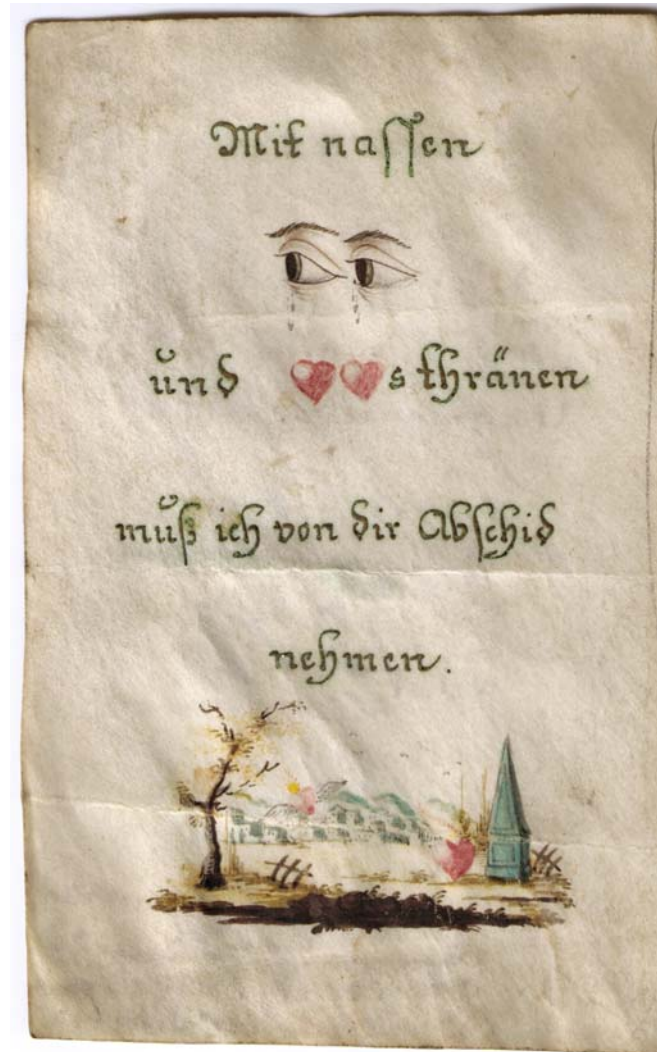 Mit nassen
und s thränen
muß ich von dir Abschid
nehmen.